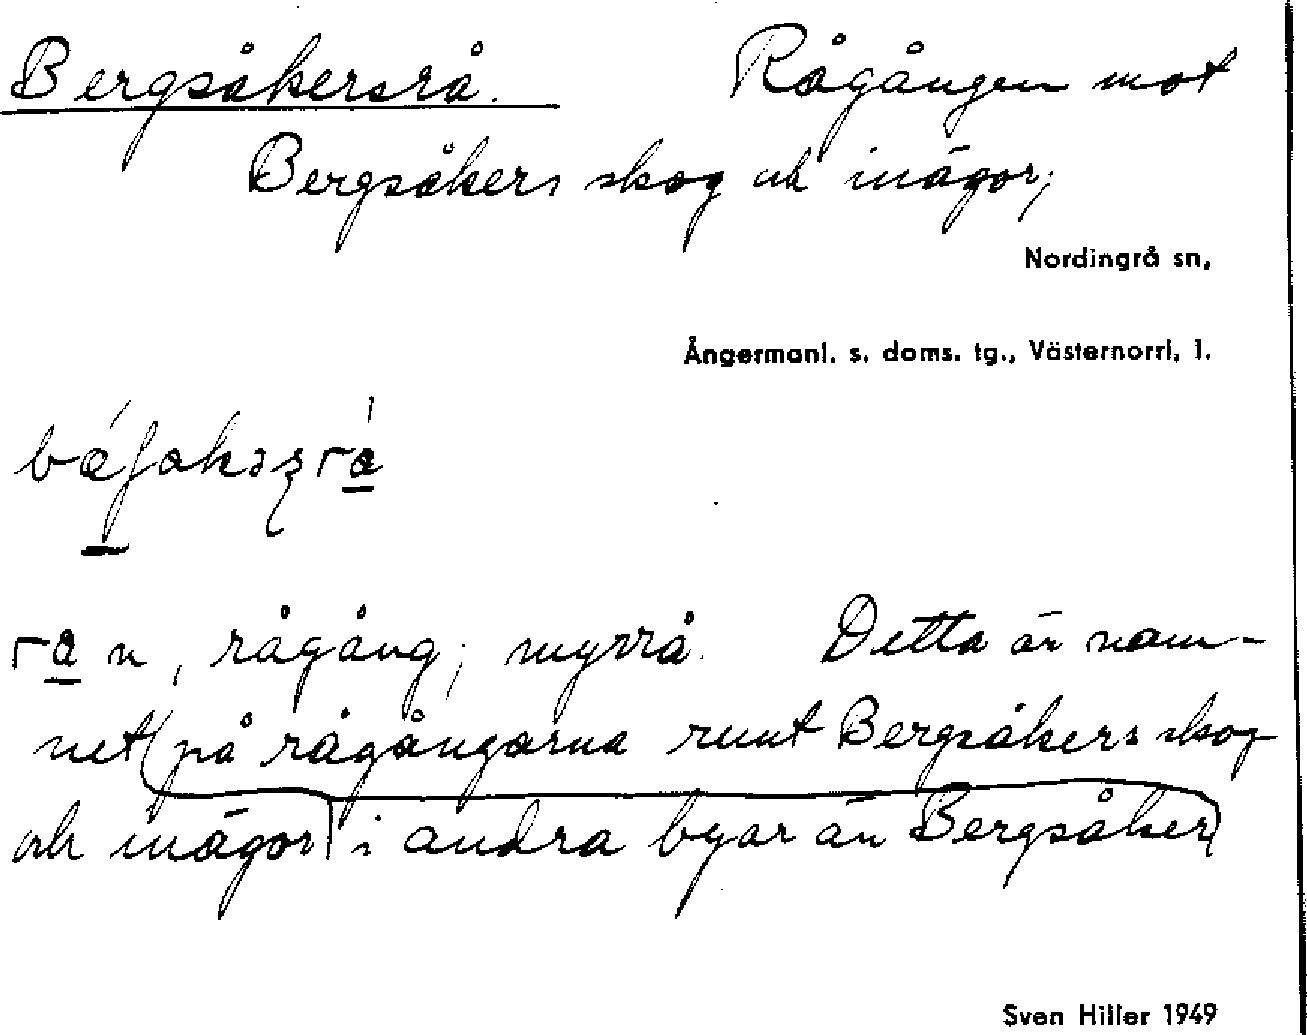 Bergsåkersrå. Rågången mot
Bergsåkers skog och inägor;
Nordingrå sn,
Ångermanl. s. doms. tg., Västernorrl. l.
ra n, rågång; myrrå. Detta är nam-
net (på rågångarna runt Bergsåkers skog
och inägor) i andra byar än Bergsåker
Sven Hiller 1949